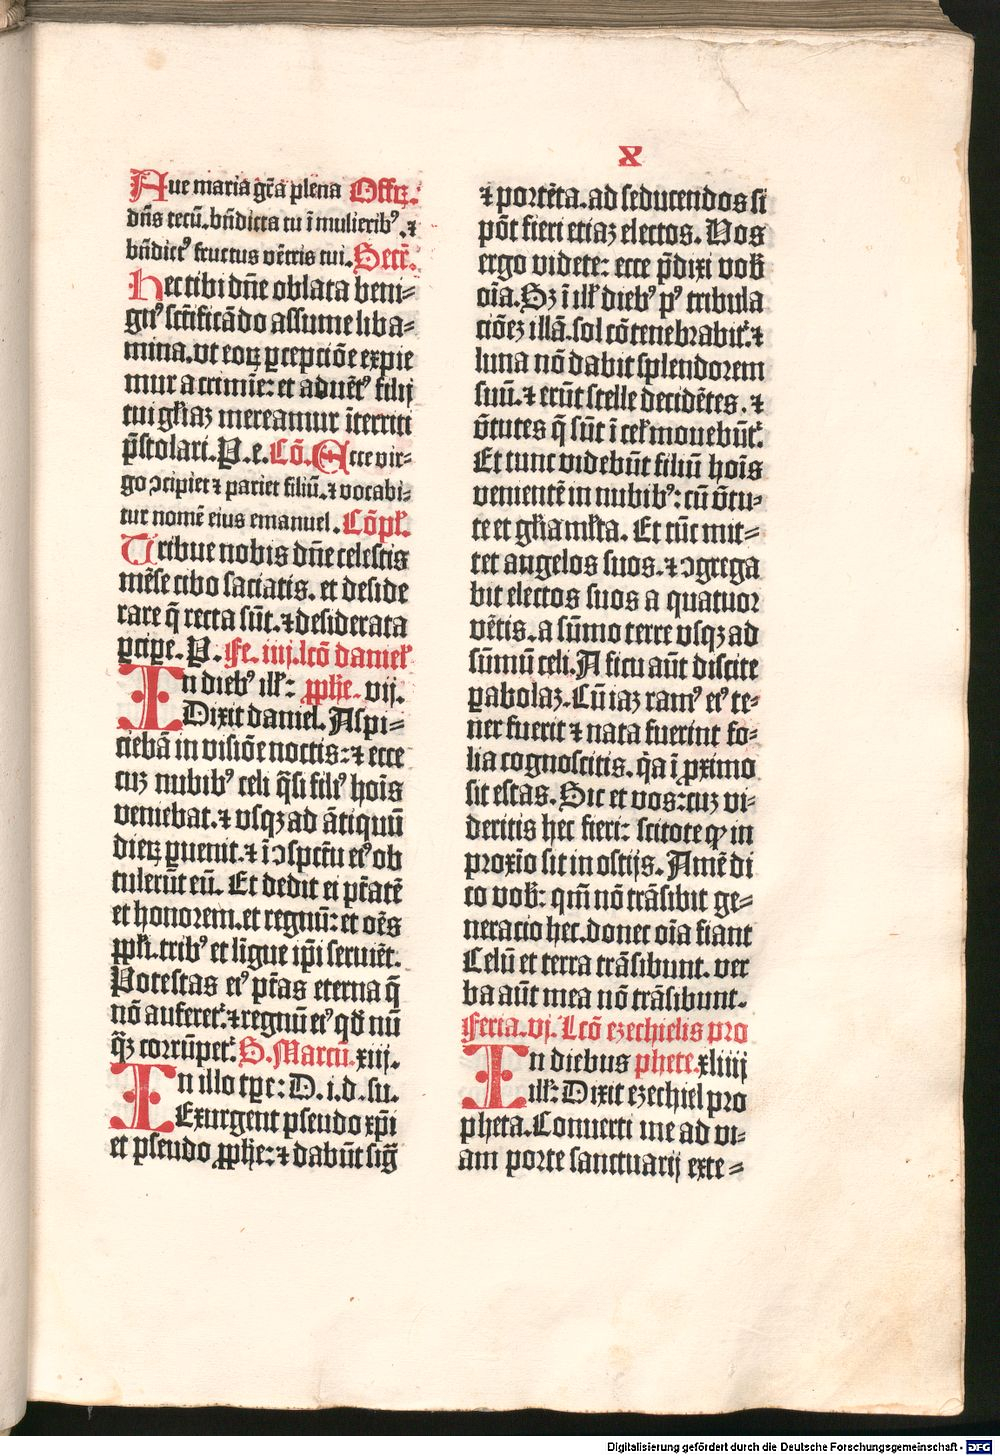 X
Aue maria gr̄a plena Offꝝ.
dn̄s tecū. bn̄dicta tu ī mulierib⁹ .⁊
bn̄dict⁹ fructus vētris tui. Secr̄.
Hec tibi dn̄e oblata beni⸗
gn⁹ sct̄ificādo assume liba⸗
mina. vt eoꝝ ꝑcepciōe expie
mur a crimīe: et aduēt⁹ filij
tui gl̄iaꝫ mereamur īterriti
p̄stolari. P. e. Cō. Ecce vir⸗
go ↄcipiet ⁊ pariet filiū. ⁊ vocabi⸗
tur nomē eius emanuel. Cōpl̄.
Tribue nobis dn̄e celestis
mēse cibo saciatis. et deside
rare q̄ recta sūt. ⁊ desiderata
ꝑcipe. P. Fe. iiij. lcō daniel̄
In dieb⁹ ill̄: ꝓph̄e. vij.
Dixit daniel. Aspi⸗
ciebā in visiōe noctis: ⁊ ecce
cuꝫ nubib⁹ celi q̄si fili⁹ hoīs
veniebat. ⁊ vsqꝫ ad ātiquū
dieꝝ ꝑuenit. ⁊ ī ↄspc̄tu ei⁹ ob
tulerūt eū. Et dedit ei pt̄atē
et honorem. et regnū: et oēs
ppl̄i. trib⁹ et līgue ip̄i seruiēt.
Potestas ei⁹ pt̄as eterna q̄
nō auferet᷑. ⁊ regnū ei⁹ qd̄ nū
q̄ꝫ corrūpet᷑. S. Marcū. xiij.
In illo tꝑe: D. i. d. su.
Exurgent pseudo xp̄i
et pseudo ꝓph̄e: ⁊ dabūt siḡ
⁊ portēta. ad seducendos si
pōt fieri etiaꝫ electos. Vos
ergo videte: ecce p̄dixi vob̄
oīa. Sꝫ ī ill̄ dieb⁹ p⁹ tribula
ciōeꝫ illā. sol cōtenebrabit᷑. ⁊
luna nō dabit splendorem
suū. ⁊ erūt stelle decidētes. ⁊
v̄tutes q̄ sūt ī cel̄ mouebūt᷑.
Et tunc videbūt filiū hoīs
venientē in nubib⁹: cū v̄tu⸗
te et gl̄ia ml̄ta. Et tūc mit⸗
tet angelos suos. ⁊ ↄgrega
bit electos suos a quatuor
vētis. a sūmo terre vsqꝫ ad
sūmū celi. A ficu aūt discite
ꝑabolaꝫ. Cū iaꝫ ram⁹ ei⁹ te⸗
ner fuerit ⁊ nata fuerint fo⸗
lia cognoscitis. q̄a ī ꝓximo
sit estas. Sic et vos: cuꝫ vi⸗
deritis hec fieri: scitote ꝙ in
proxīo sit in ostijs. Amē di
co vob̄: qm̄ nō trāsibit ge⸗
neracio hec. donec oīa fiant
Celū et terra trāsibunt. ver
ba aūt mea nō trāsibunt.
Feria. vj. Lcō ezechielis pro
In diebus phete. xliiij
ill̄: Dixit ezechiel pro
pheta. Conuerti me ad vi⸗
am porte sanctuarij exte⸗
Digitalisierung gefördert durch die Deutsche Forschungsgemeinschaft - DFG